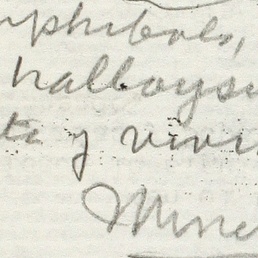 mphibols,
halloysi
ta y vivi
Mine